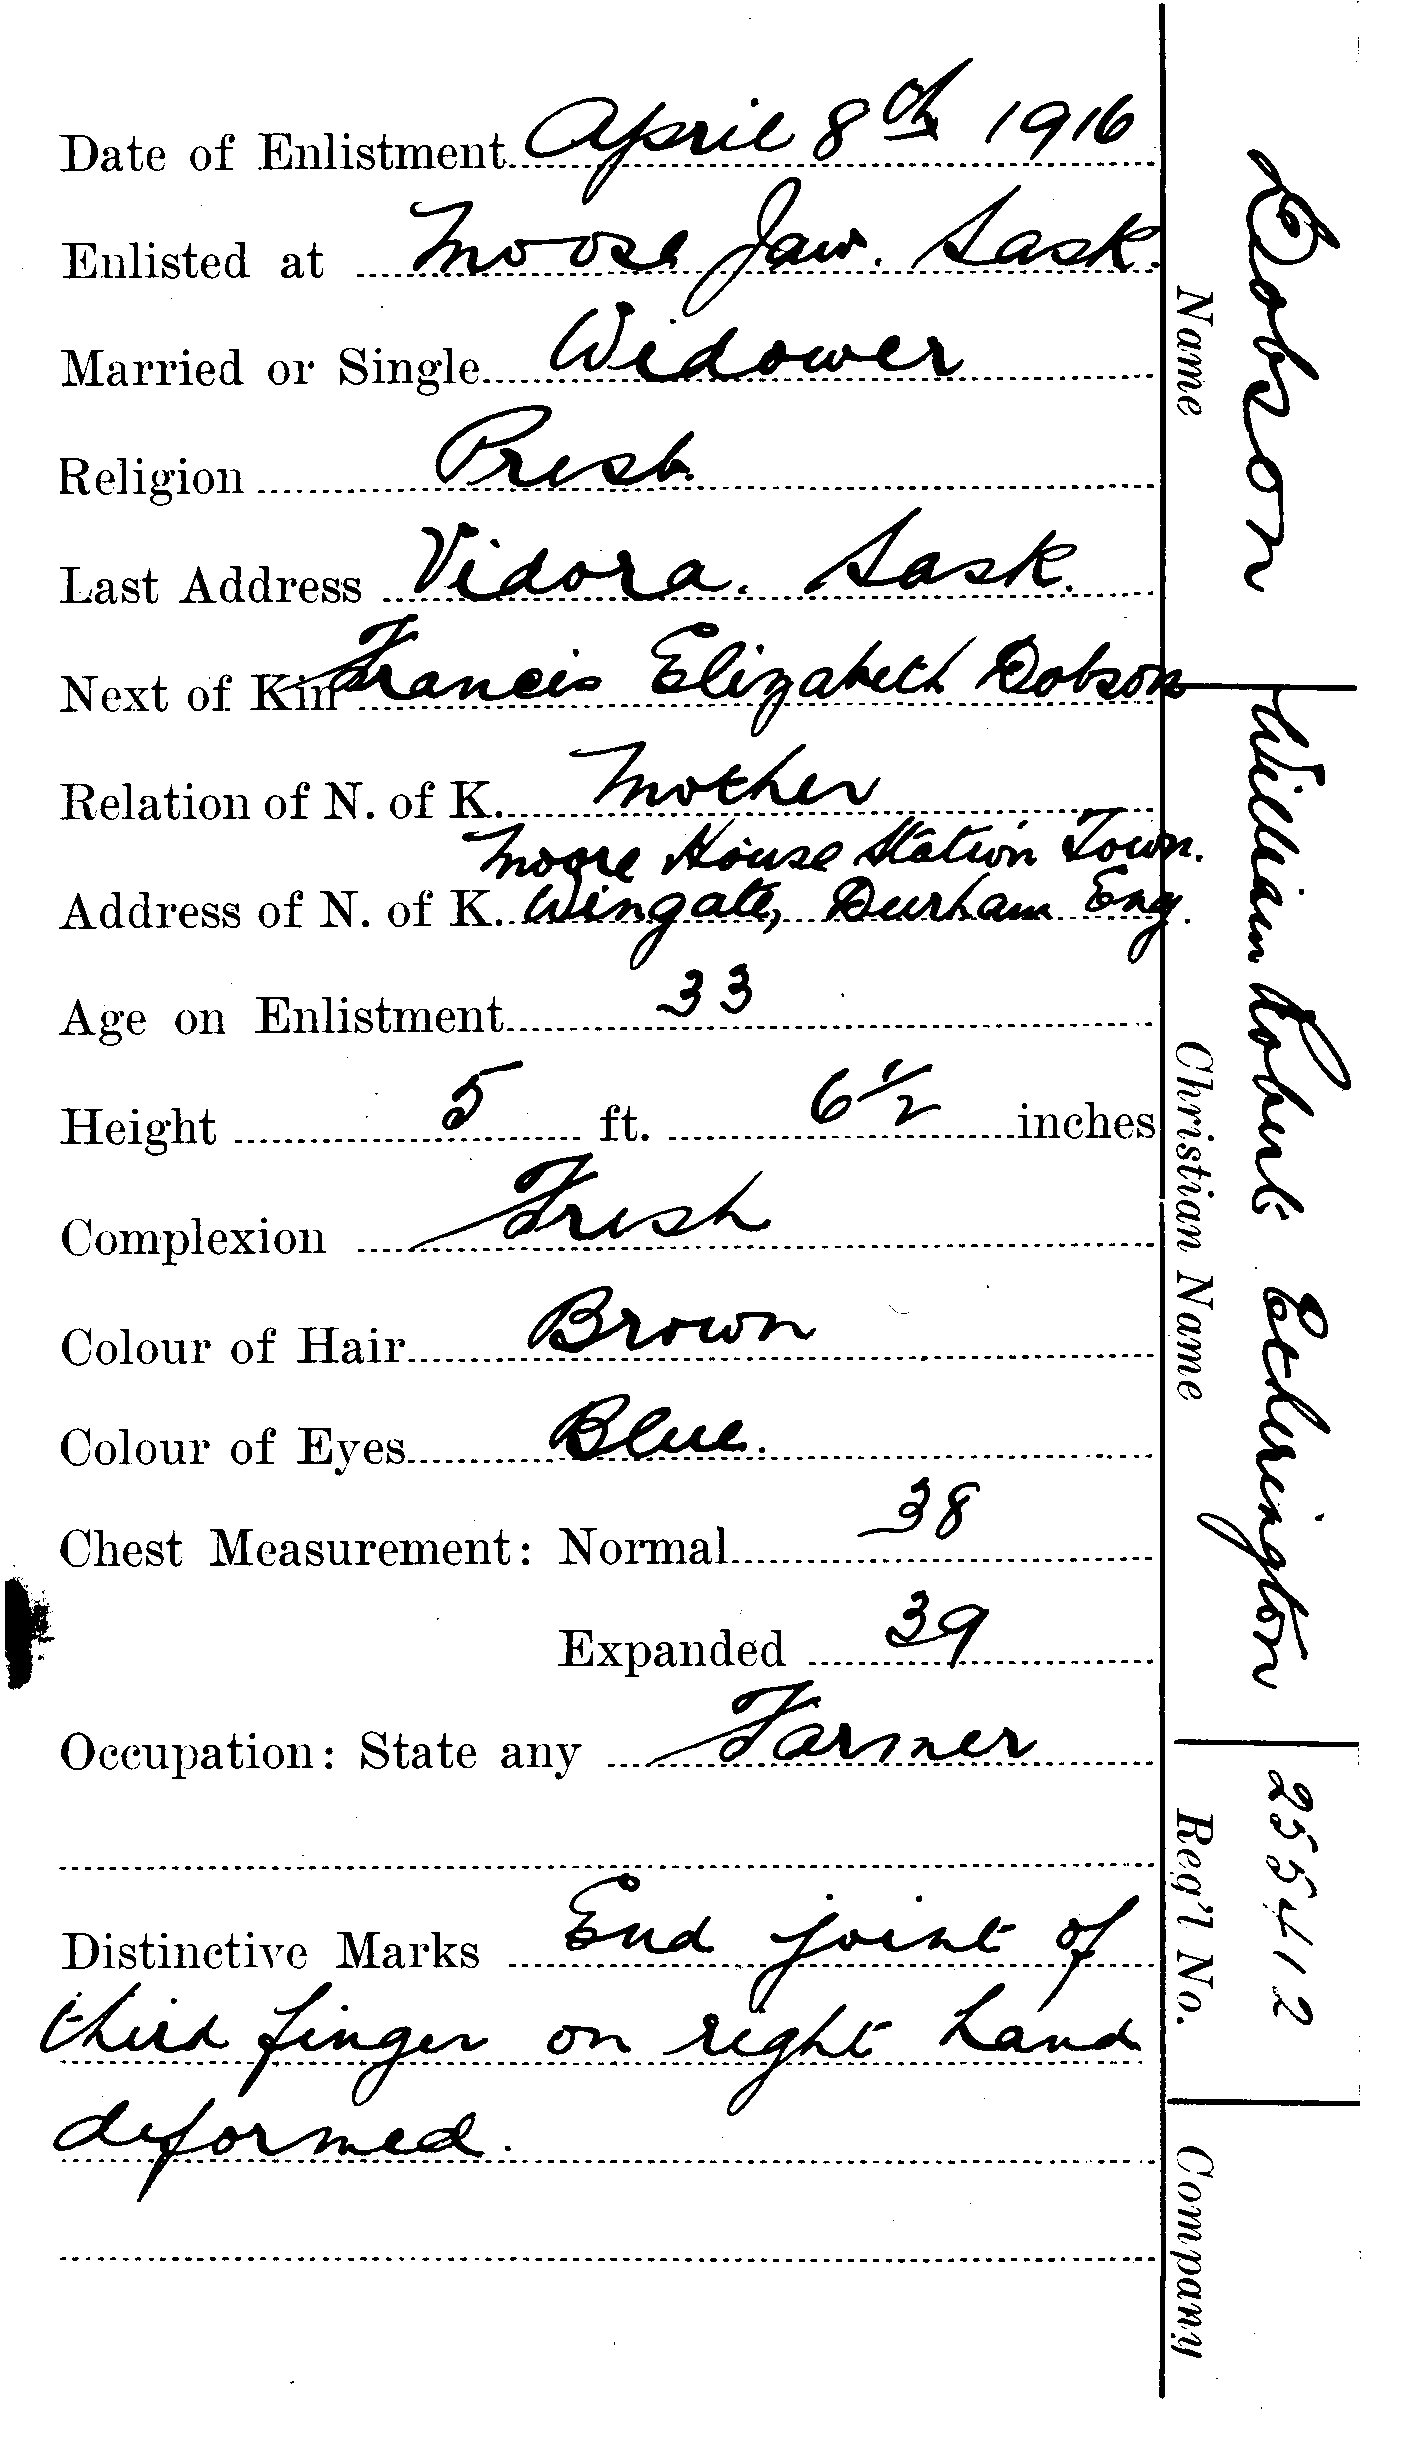 Date of Enlistment April 8th 1916
Enlisted at Moose Jaw. Sask.
Married or Single Widower
Religion Presb.
Last Address Vidora. Sask.
Next of Kin Francis Elizabeth Dobson
Relation of N. of K. Mother
Moore House Station Town.
Address of N. of K. Wingate, Durham Eng.
Age on Enlistment 33
Height 5 ft. 6 1/2 inches
Complexion Fresh
Colour of Hair Brown
Colour of Eyes Blue.
Chest Measurement: Normal 38
Expanded 39
Occupation: State any Farmer
Distinctive Marks End joint of
third finger on right hand
deformed.
Name Dobson
Christian Name William Robert Etherington
Reg'l No. 255412
Company